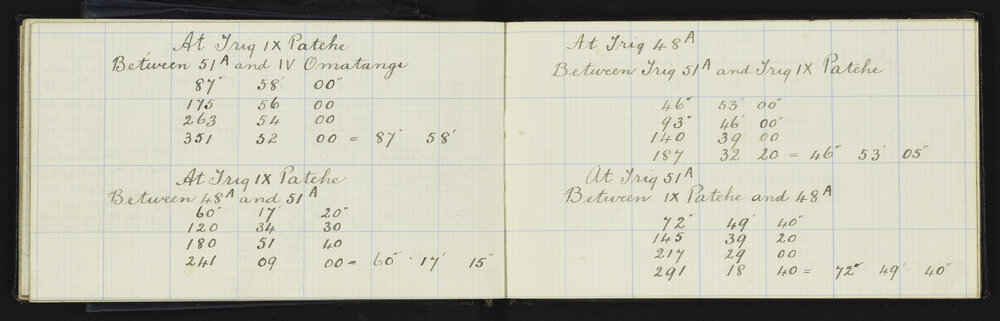 At Trig IX Patehe
Between 51A and IV Omatangi
87° 58' 00"
175 56 00
263 54 00
351 52 00 = 87° 58'
At Trig IX Patehe
Between 48A and 51A
60° 17 20"
120 34 30
180 51 40
241 09 00 = 60° 17' 15"
At Trig 48A
Between Trig 51A and Trig IX Patehe
46° 53' 00"
93° 46' 00"
140 39 00
187 32 20 = 46° 53' 05"
At Trig 51A
Between IX Patehe and 48A
72° 49' 40"
145 39 20
217 29 00
291 18 40 = 72° 49' 40"